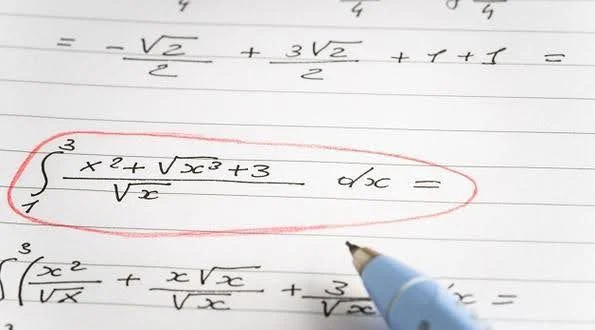 4 4 4
= -√2/2 + 3√2/2 + 1 + 1 =
∫₁³ (x² + √x³ + 3)/√x dx =
∫³ (x²/√x + x√x/√x + 3/√x x =